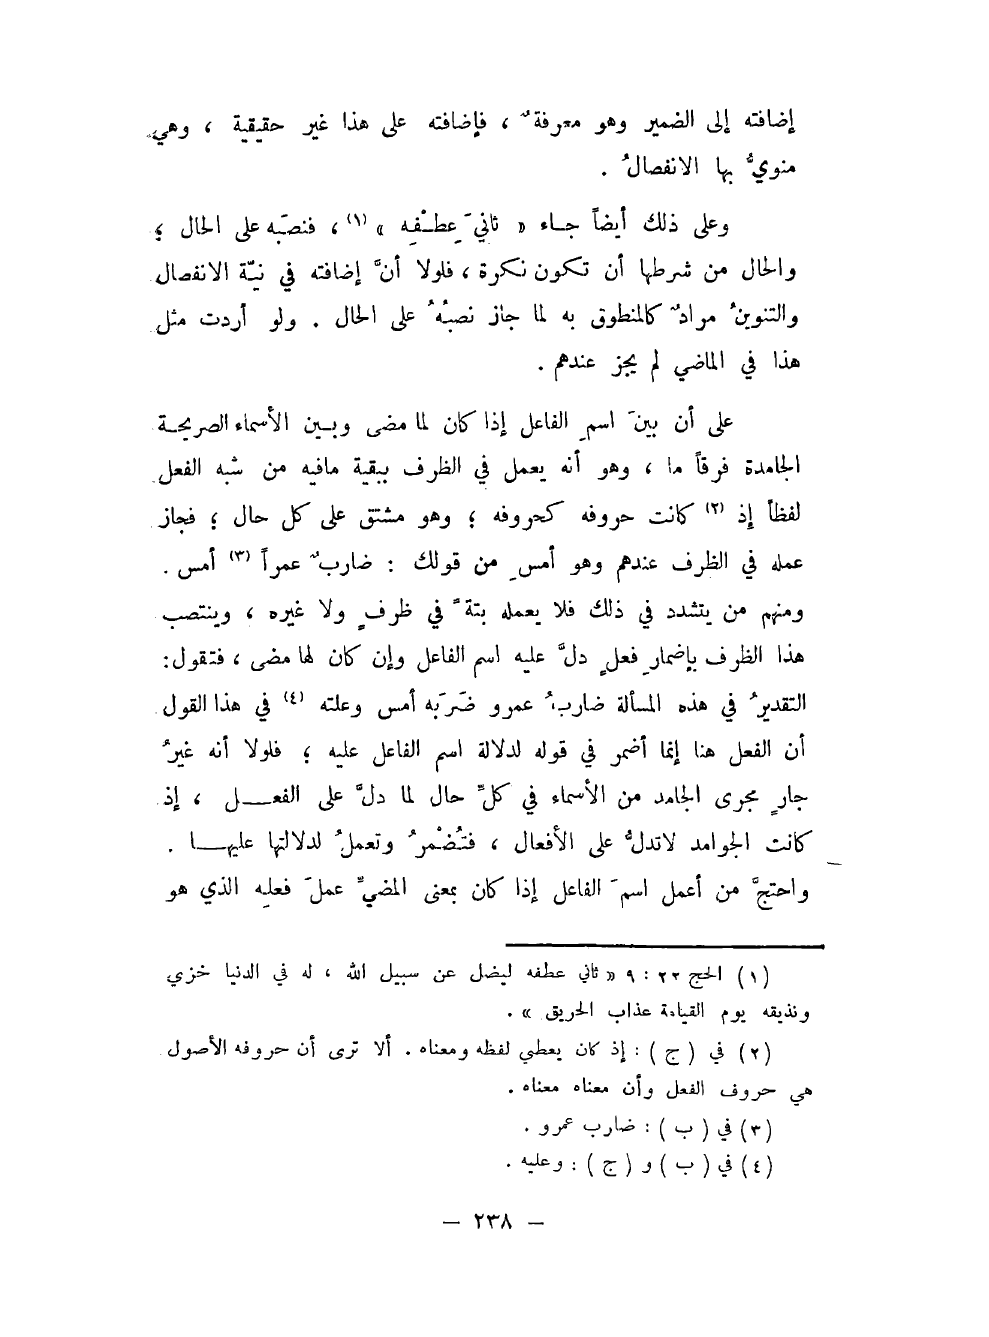 إضافته إلى الضمير وهو معرفةٌ ، فإضافته على هذا غير حقيقية ، وهي
منويٌّ بها الانفصالُ .
وعلى ذلك أيضاً جـاء « ثانيَ عِطـْفِه » (١) ، فنصَبه على الحال ؛
والحال من شرطها أن تكون نكرة ، فلولا أنَّ إضافته في نيّة الانفصال
والتنوينُ مرادٌ كالمنطوق به لما جاز نصبُهُ على الحال . ولو أردت مثل
هذا في الماضي لم يجز عندهم .
على أن بينَ اسمِ الفاعل إذا كان لما مضى وبـين الأسماء الصريحـة
الجامدة فرقاً ما ، وهو أنه يعمل في الظرف ببقية مافيه من شبه الفعل
لفظاً إذ (٢) كانت حروفه كحروفه ؛ وهو مشتق على كل حال ؛ فجاز
عمله في الظرف عندهم وهو أمسِ من قولك : ضاربٌ عمراً (٣) أمس .
ومنهم من يتشدد في ذلك فلا يعمله بتةً في ظرفٍ ولا غيره ، وينتصب
هذا الظرف بإضمارِ فعلٍ دلَّ عليه اسم الفاعل وإن كان لما مضى ، فتقول:
التقديرُ في هذه المسألة ضاربُ عمرو ضَرَبَه أمس وعلته (٤) في هذا القول
أن الفعل هنا إنما أضمر في قوله لدلالة اسم الفاعل عليه ؛ فلولا أنه غيرُ
جارٍ مجرى الجامد من الأسماء في كلِّ حال لما دلَّ على الفعـــل ، إذ
كانت الجوامد لاتدلُّ على الأفعال ، فتُضْمرُ وتعملُ لدلالتها عليهـــا .
واحتجَّ من أعمل اسمَ الفاعل إذا كان بمعنى المضيِّ عملَ فعلِه الذي هو
(١) الحج ٢٢ : ٩ « ثاني عطفه ليضل عن سبيل الله ، له في الدنيا خزي
ونذيقه يوم القيامة عذاب الحريق » .
(٢) في ( ج ) : إذ كان يعطي لفظه ومعناه . ألا ترى أن حروفه الأصول
هي حروف الفعل وأن معناه معناه .
(٣) في ( ب ) : ضارب عمرو .
(٤) في ( ب ) و ( ج ) : وعليه .
— ٢٣٨ —